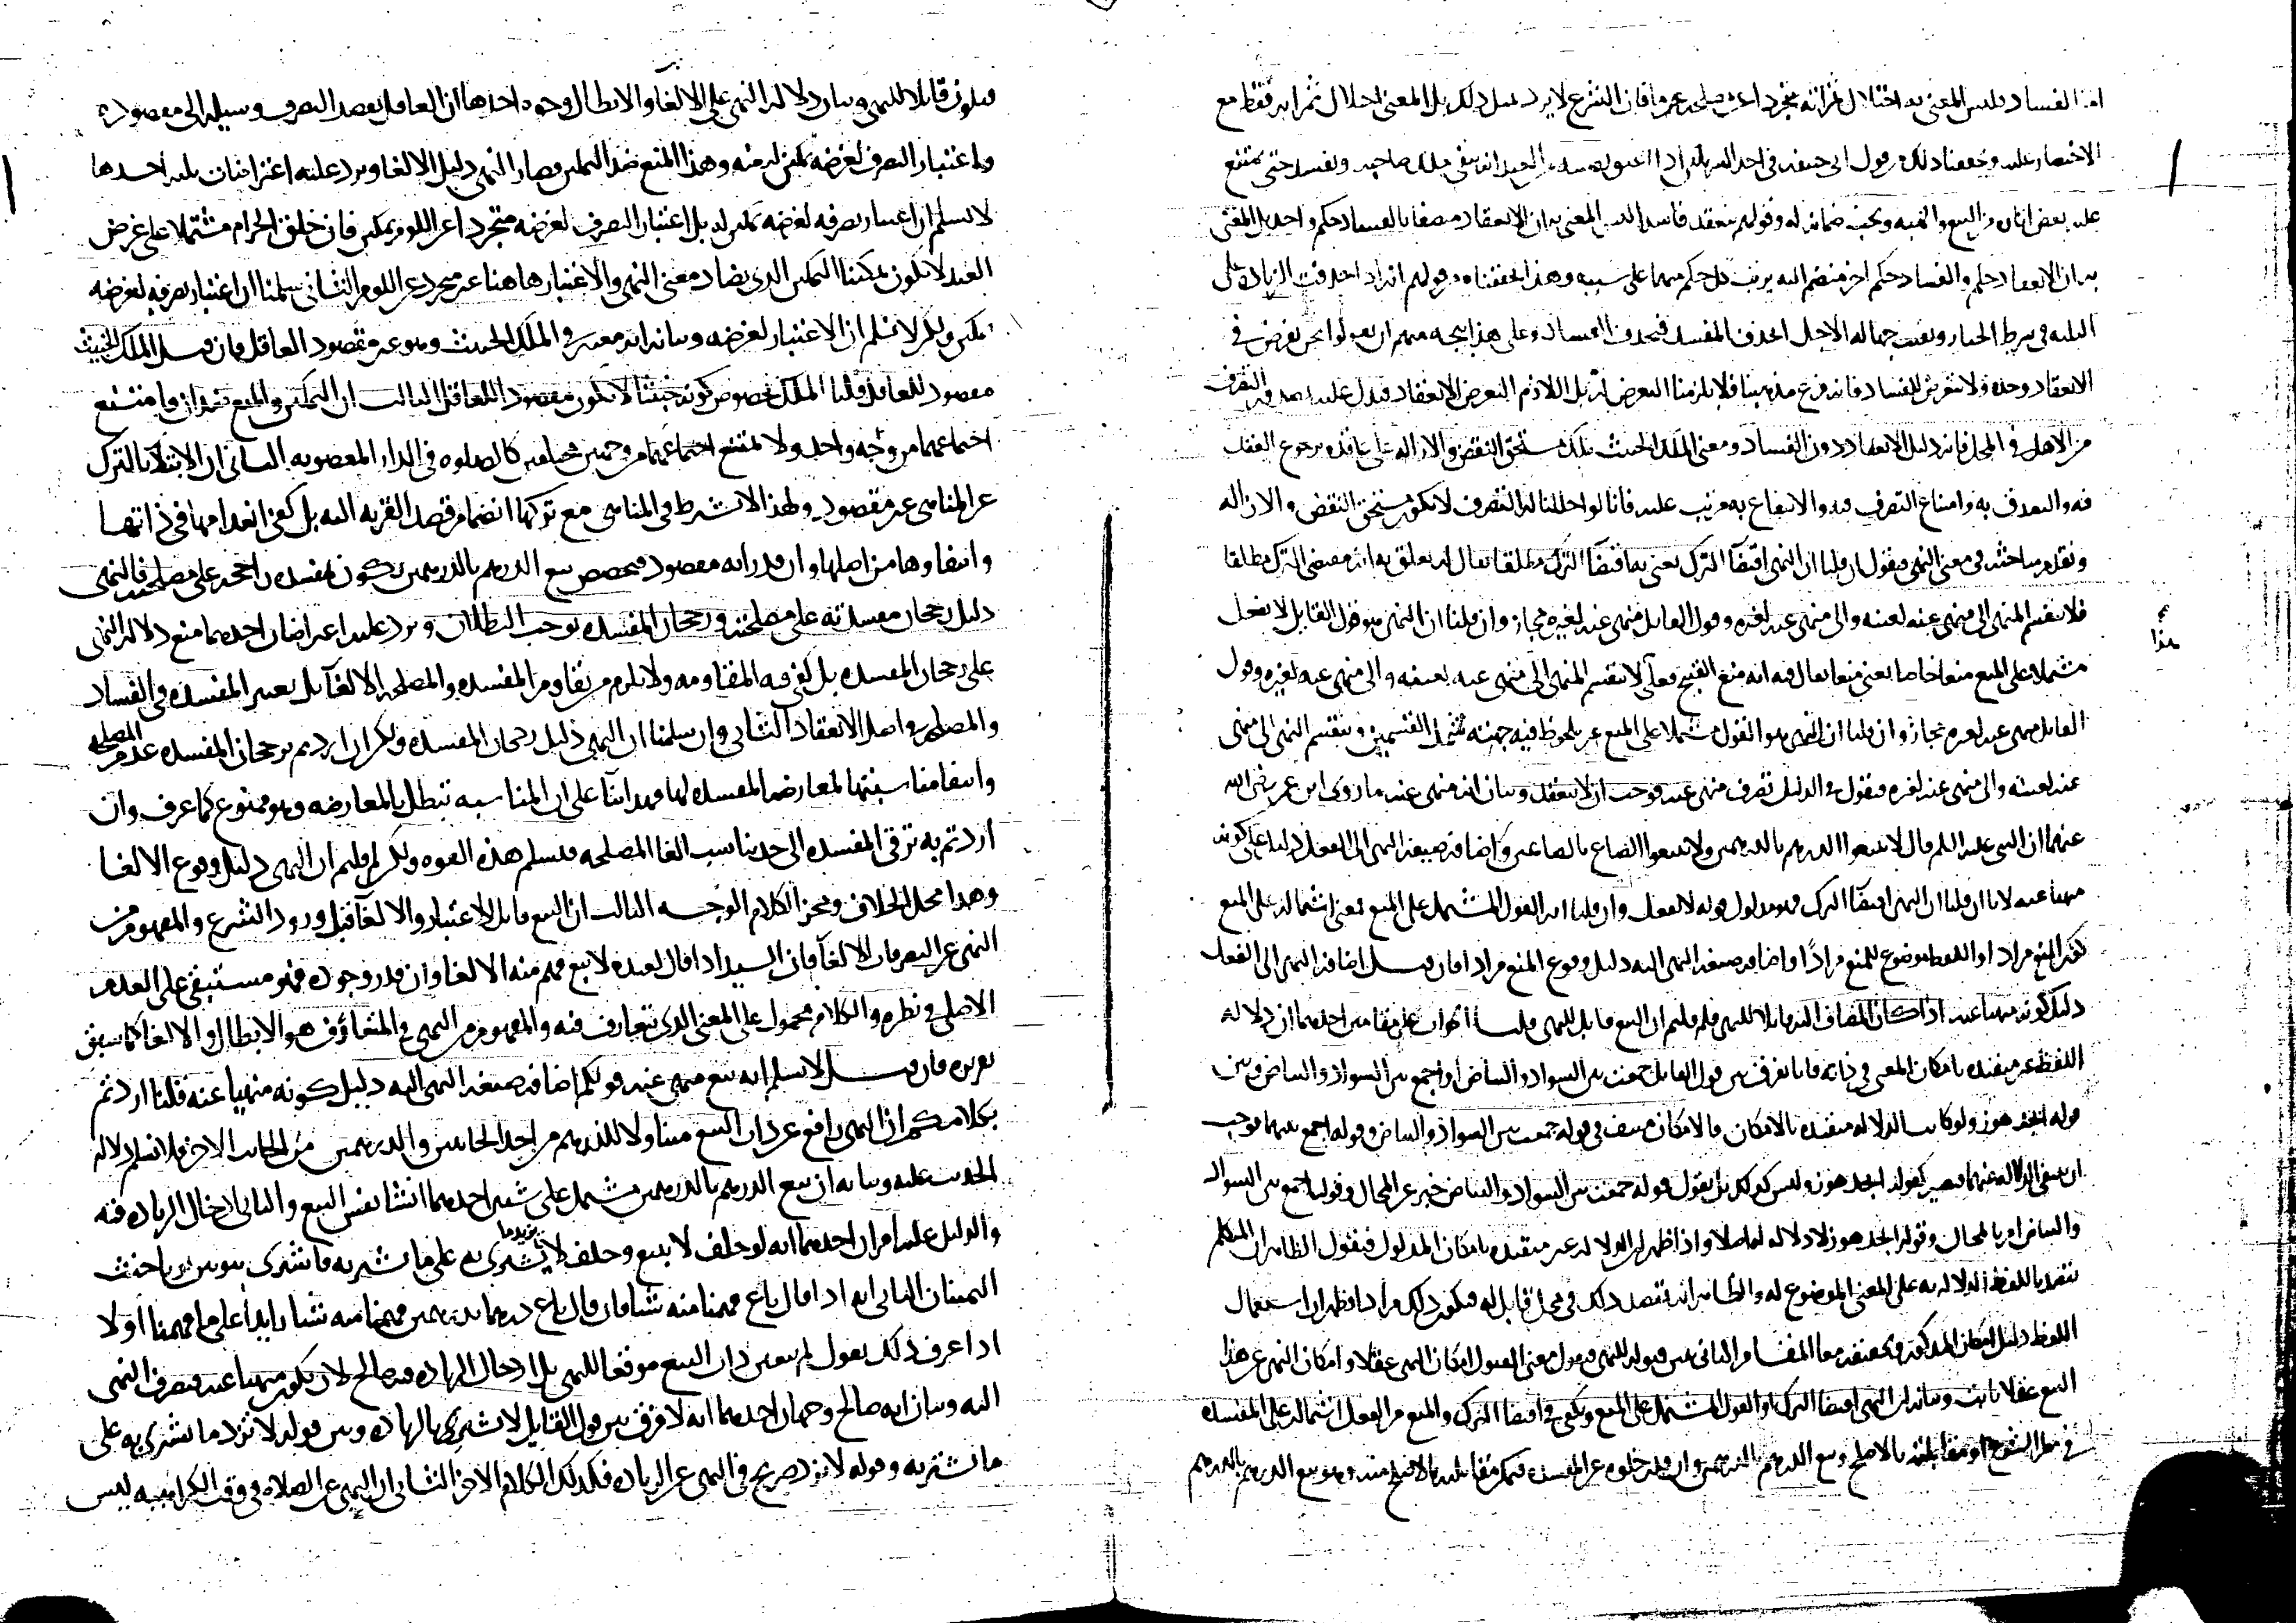 اما الفساد فليس المعنى به اختلال ثمراته بمجرد اعن مصلحه فان الشرع لا يرد بمثل ذلك بل المعنى اختلال ثمراته فقط مع
الاختصار عليه وحققنا ذلك قول ابى حنيفه فى احد الشريكين اذا اعتق نصيبه العبد انه يبقى ملك صاحبه ونفسد حتى يمتنع
عليه بعض اثاره من البيع والهبه ويجب ضمانه له وقولهم ينعقد فاسدا ليس المعنى به ان الانعقاد متصفا بالفساد حكم واحد بل المعنى
به ان الانعقاد حكم والفساد حكم اخر منضم اليه يرتب كل حكم منهما على سببه وهذا حققناه وقولهم انه اذا حذفت الزياده على
الثلثه فى شرط الخيار وتعيين جهاله الاجل انحذف المفسد فيحذف الفساد وعلى هذا يتجه منهم ان يقولوا نحن نفرض فى
الانعقاد وحده ولا نتعرض للفساد فانه فرع مذهبنا فلا يلزمنا التعرض له بل اللازم التعرض للانعقاد فيدل عليه التصرف
من الاهل فى المحل فانه دليل الانعقاد دون الفساد ومعنى الملك الخبيث ملك مستحق النقض والازاله على عاقده برجوع العقد
فيه والتصدق به وامتناع التصرف فيه والانتفاع به مرتب عليه فانا لو احللنا له التصرف لا يكون مستحق النقض والازاله
ونقدم مباحثه فى معنى النهى فنقول ان قلنا ان النهى اقتضا الترك يعنى به اقتضا الترك مطلقا يقال له تعلق به انه مقتضى الترك مطلقا
فلا ينقسم المنهى الى منهى عنه لعينه والى منهى عنه لغيره وقول القايل منهى عنه لغيره مجاز وان قلنا ان النهى هو قول القايل لا تفعل
مشتملا على المنع منعا خاصا يعنى منعا يقال فيه انه منع القبيح فعلى لا ينقسم المنهى الى منهى عنه لعينه والى منهى عنه لغيره وقول
القايل منهى عنه لغيره مجاز وان قلنا ان النهى هو القول مشتملا على المنع غير ملحوظ فيه جهته شمل القسمين وينقسم النهى الى منهى
عنه لعينه والى منهى عنه لغيره فنقول فى الدليل تصرف منهى عنه فوجب ان لا ينعقد وبيان انه منهى عنه ما روى ابن عمر رضى الله
عنهما ان النبى عليه السلم قال لا تبيعوا الدرهم بالدرهمين ولا تبيعوا الصاع بالصاعين واضافه صيغه النهى الى الفعل دليل على كونه
منهيا عنه لانا ان قلنا ان النهى اقتضا الترك فهو مدلول قوله لا تفعل وان قلنا انه القول المشتمل على المنع فمعنى اشتماله على المنع
كون المنع مرادا واللفظ موضوع للمنع مرادا واضافه صيغه النهى اليه دليل وقوع المنع مرادا فان قيل اضافه النهى الى الفعل
دليل كونه منهيا عنه اذا كان المضاف اليه قابلا للنهى فلم قلتم ان البيع قابل للنهى قلنا الجواب على مقامين احدهما ان دلاله
اللفظ غير مقيده بامكان المعنى فى ذاته فانا نفرق بين قول القايل جمعت بين السواد والبياض او اجمع بين السواد والبياض وبين
قوله ابجد هوز ولو كانت الدلاله مقيده بالامكان فالامكان منتف فى قوله جمعت بين السواد والبياض وقوله اجمع بينهما فوجب
ان تنتفى الدلاله عنهما فيصير كقوله ابجد هوز وليس كذلك بل نقول قوله جمعت بين السواد والبياض خبر عن المحال وقوله اجمع بين السواد
والبياض امر بالمحال وقوله ابجد هوز لا دلاله له اصلا واذا ظهر ان الدلاله غير مقيده بامكان المدلول فنقول الظاهر ان المتكلم
يقصد باللفظ الدلاله به على المعنى الموضوع له والظاهر انه يقصد ذلك فى محل قابل له فيكون ذلك مرادا فظهر ان استعمال
اللفظ دليل امكان المذكور وحقيقه معا المقام الثانى نبين قبوله للنهى فنقول معنى القبول امكان النهى عقلا وامكان النهى عن هذا
البيع عقلا ثابت وبيانه ان النهى اقتضا الترك او القول المشتمل على المنع ويكفى فى اقتضا الترك والمنع من الفعل اشتماله على المفسده
فى نظر الشرع او مقابلته بالاصلح وبيع الدرهم بالدرهمين وان قدر خلوه عن المفسده فيمكن مقابلته بالاصلح منه وهو بيع الدرهم بالدرهم
هذا
فيكون قابلا للنهى وبيان دلاله النهى على الالغا والابطال وجوه احدها ان العاقل يقصد التصرف وسيله الى مقصوده
واعتبار التصرف لغرضه تمكين له منه وهذا المنع ضد التمكين وصار النهى دليل الالغا ويرد عليه اعتراضان ثلثه احدها
لا نسلم ان اعتبار تصرفه لغرضه تمكين له بل اعتبار التصرف لغرضه متجرد اعن اللوم يمكن فان خلق الحرام مشتملا على غرض
العبد لا يكون تمكينا التمكين الذى يضاد معنى النهى والاعتبار هاهنا غير مجرد عن اللوم الثانى سلمنا ان اعتبار تصرفه لغرضه
تمكين ولكن لا نسلم ان الاعتبار لغرضه وبيانه انه معتبر فى الملك الخبيث وهو غير مقصود العاقل فان قيل الملك الخبيث
مقصود للعاقل قلنا الملك بخصوص كونه خبيثا لا يكون مقصود اللعاقل الثالث ان التمكين والمنع ضدان وامتنع
اجتماعهما من وجه واحد ولا يمتنع اجتماعهما من وجهين مختلفين كالصلوه فى الدار المغصوبه الثانى ان الابتلا بالترك
عن المناهى غير مقصود ولهذا لا نشرط فى المناهى مع تركها انضمام قصد القربه اليه بل كفى انعدامها فى ذاتها
وانتفاوها من اصلها وان قدر انه مقصود فتخصيص بيع الدرهم بالدرهمين يكون لمفسده راجحه على مصلحته فالنهى
دليل رجحان مفسدته على مصلحته ورجحان المفسده يوجب البطلان ويرد عليه اعتراضان احدهما منع دلاله النهى
على رجحان المفسده بل كفى فيه المقاومه ولا يلزم من تقاوم المفسده والمصلحه الالغا بل تعتبر المفسده فى الفساد
والمصلحه فى اصل الانعقاد الثانى وان سلمنا ان النهى دليل رجحان المفسده ولكن ان اردتم برجحان المفسده عدم المصلحه
وانتفا مناسبتها لمعارضه المفسده لها فهذا بنا على ان المناسبه تبطل بالمعارضه وهو ممنوع كما عرف وان
اردتم به ترقى المفسده الى حد يناسب الغا المصلحه فنسلم هذه القوه ولكن لم قلتم ان النهى دليل وقوع الالغا
وهذا محل الخلاف ومحز الكلام الوجه الثالث ان البيع قابل للاعتبار والالغا قبل ورود الشرع والمفهوم من
النهى عن التصرفات الالغا فان السيد اذا قال لعبده لا تبع فهم منه الالغا وان قدر وجوده فهو مستبقى على العدم
الاصلى فى نظره والكلام محمول على المعنى الذى يتعارف فيه والمفهوم من النهى فى المتعارف هو الابطال والالغا كما سبق
تقريره فان قيل لا نسلم انه بيع منهى عنه قولكم اضافه صيغه النهى اليه دليل كونه منهيا عنه قلنا اردتم
بكلامكم ان النهى رافع عن ذات البيع متناولا للدرهم من احد الجانبين والدرهمين من الجانب الاخر فلا نسلم دلاله
الحديث عليه وبيانه ان بيع الدرهم بالدرهمين مشتمل على شيئين احدهما انشا نفس البيع والثانى ادخال الزياده فيه
والدليل عليه امران احدهما انه لو حلف لا يبيع وحلف لا يشترى به على ما يشتريه فاشترى ثوبين حنث
اليمينان الثانى انه اذا قال باع فهمنا منه شيا فان قال باع درهما بدرهمين فهمنا منه شيا زايدا على ما فهمنا اولا
اذا عرف ذلك نقول لم يتعين ذات البيع موقعا للنهى بل ادخال الزياده فيه صالح لان يكون منهيا عنه فيصرف النهى
اليه وبيان انه صالح وجهان احدهما انه لا فرق بين قول القايل لا تشترى بالزياده وبين قوله لا تزد ما تشترى به على
ما تشتريه وقوله لا تزد صريح فى النهى عن الزياده فكذلك الكلام الاخر الثانى ان النهى عن الصلاه فى وقت الكراهيه ليس